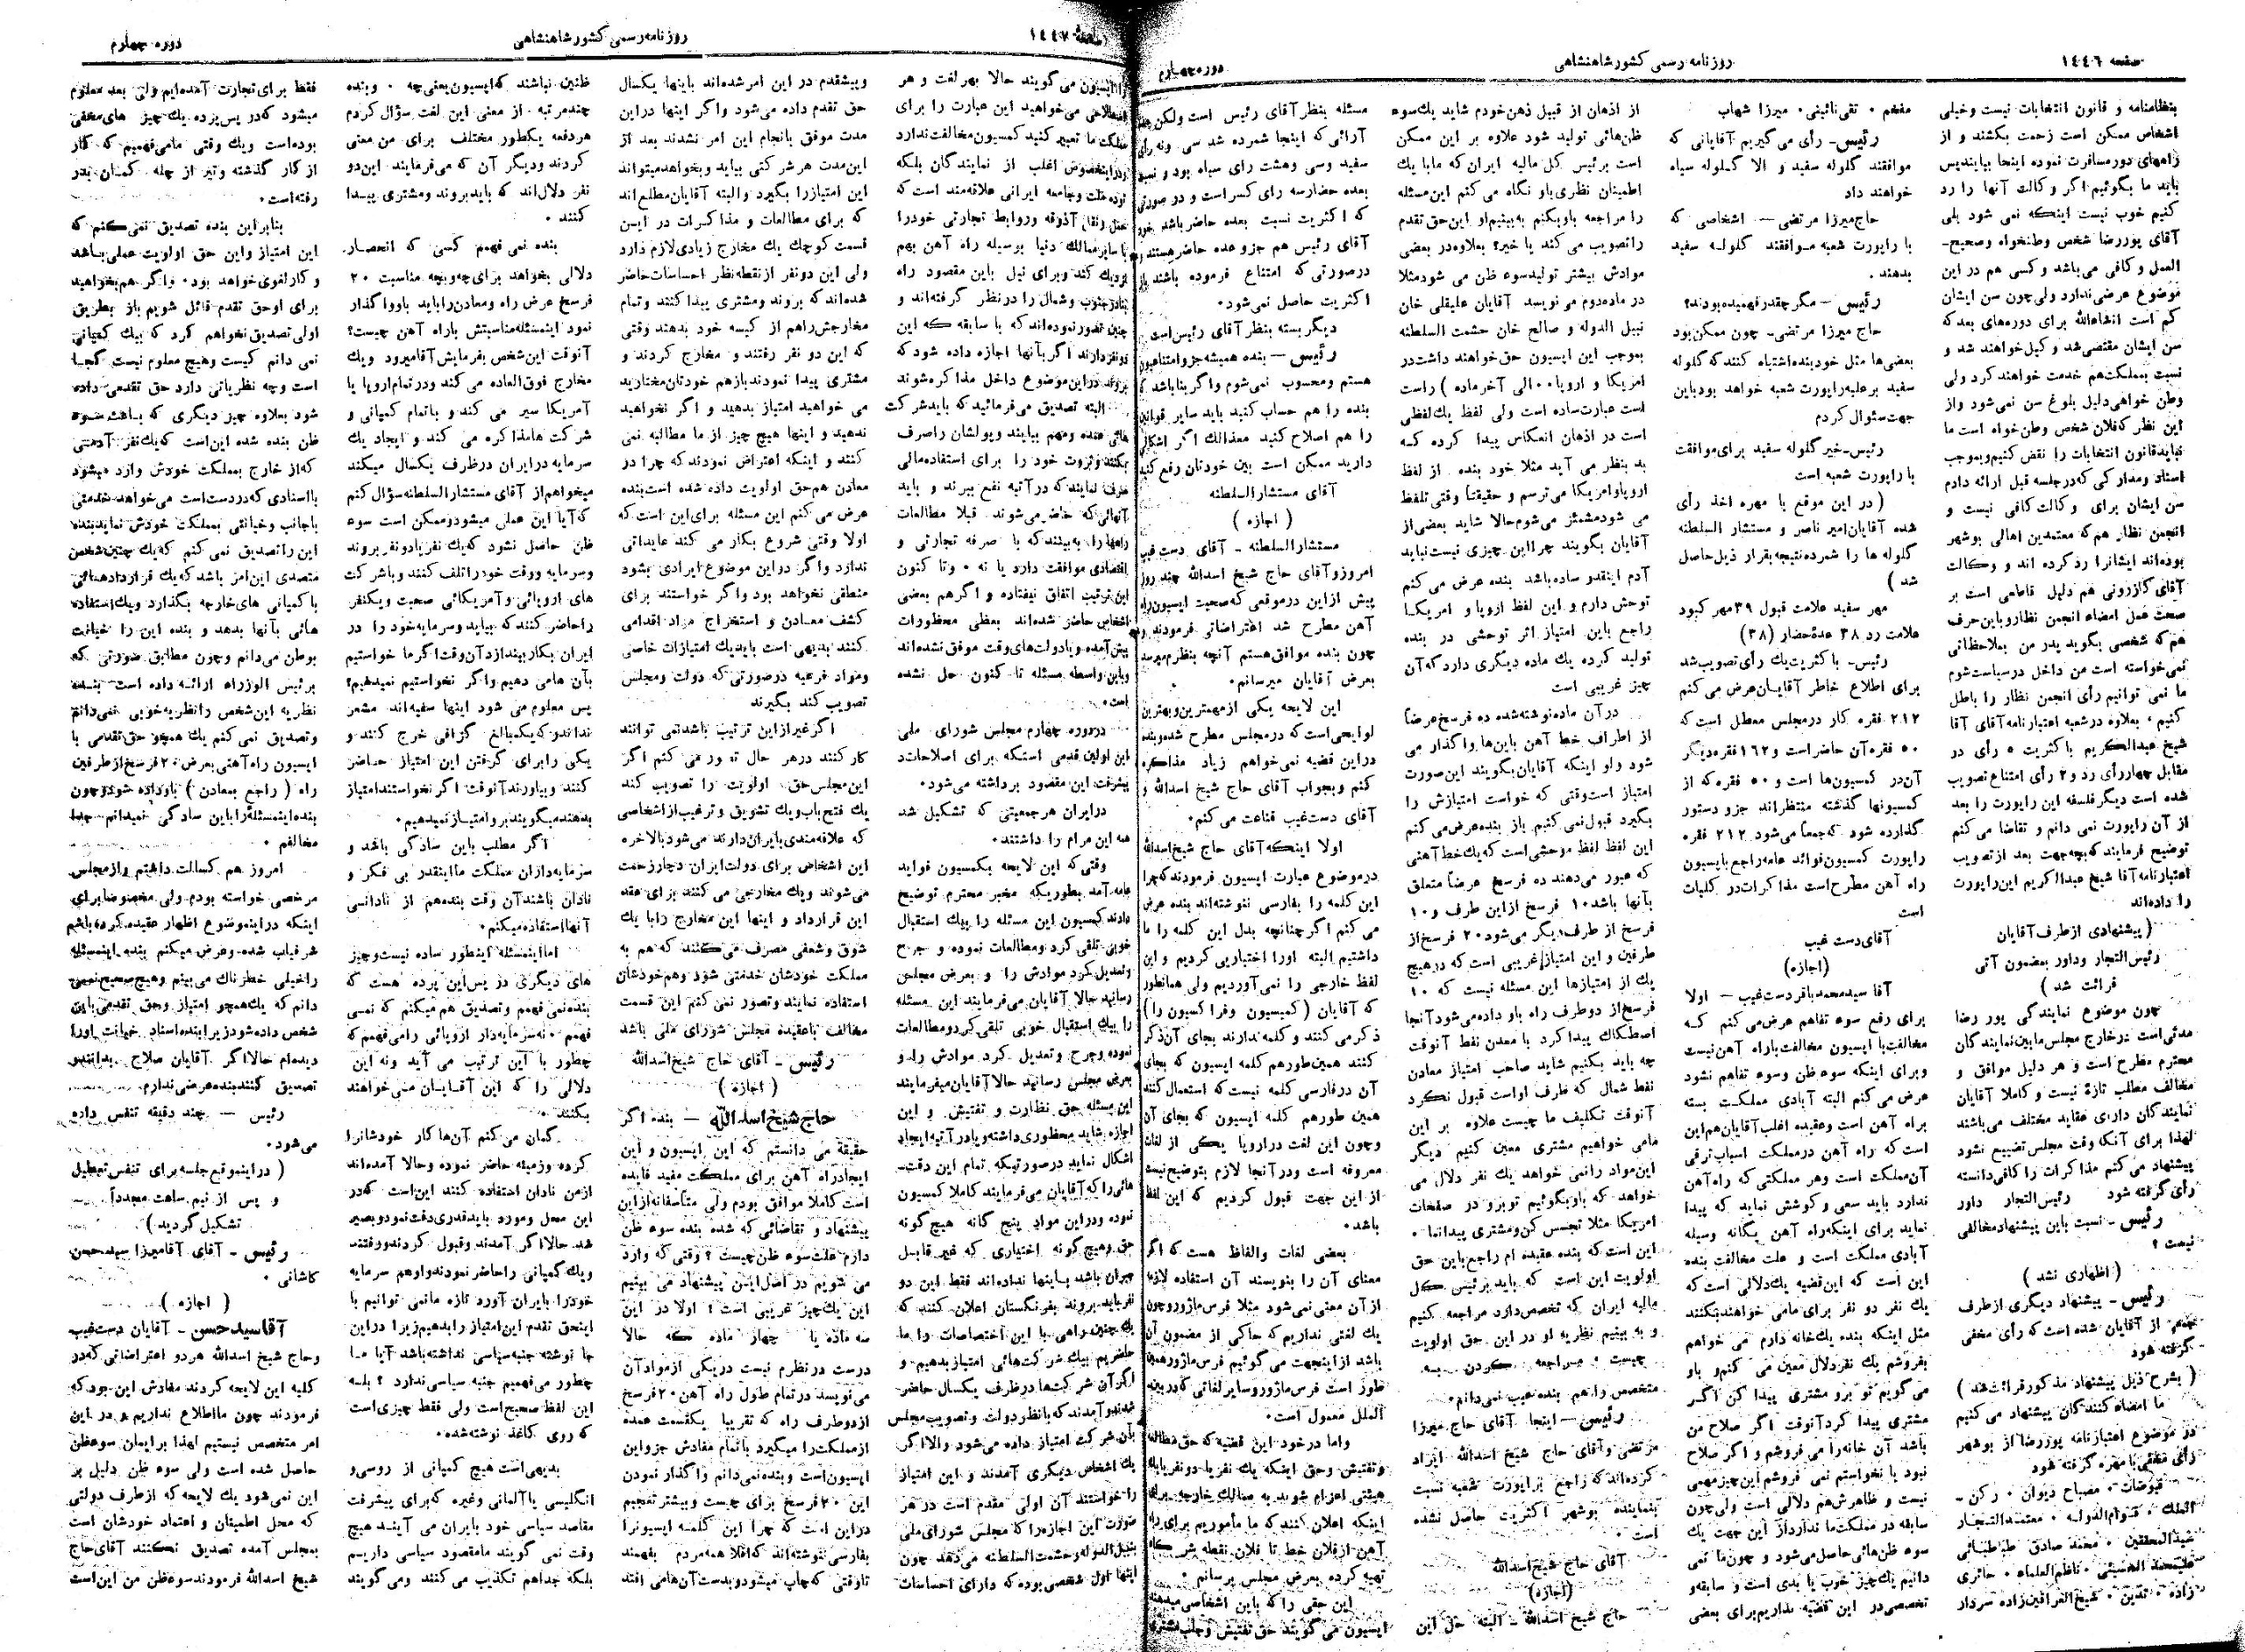 صفحه ۱٤٤٦
روزنامه رسمی کشور شاهنشاهی
دوره چهارم
بنظامنامه و قانون انتخابات نیست وخیلی
اشخاص ممکن است زحمت بکشند و از
راههای دور مسافرت نموده اینجا بیایند پس
باید ما بگوئیم اگر وکالت آنها را رد
کنیم خوب نیست اینکه نمی شود بلی
آقای پوررضا شخص وطنخواه وصحیح‌-
العمل و کافی می‌باشد و کسی هم در این
موضوع عرضی ندارد ولی چون سن ایشان
کم است انشاءالله برای دوره‌های بعد که
سن ایشان مقتضی شد و کیل خواهند شد و
نسبت بمملکت هم خدمت خواهند کرد ولی
وطن خواهی دلیل بلوغ سن نمی شود واز
این نظر که فلان شخص وطن‌خواه است ما
نباید قانون انتخابات را نقض کنیم و بموجب
اسناد و مدارکی که در جلسه قبل ارائه دادم
سن ایشان برای وکالت کافی نیست و
انجمن نظار هم که معتمدین اهالی بوشهر
بوده‌اند ایشانرا رد کرده اند و وکالت
آقای کازرونی هم دلیل قاطعی است بر
صحت عمل امضاء انجمن نظار و باین حرف
هم که شخصی بگوید پدر من بملاحظاتی
نمی‌خواسته است من داخل در سیاست شوم
ما نمی توانیم رأی انجمن نظار را باطل
کنیم، بعلاوه در شعبه اعتبارنامه آقای آقا
شیخ عبدالکریم باکثریت ٥ رأی در
مقابل چهار رأی رد و ۲ رأی امتناع تصویب
شده است دیگر فلسفه این راپورت را بعد
از آن راپورت نمی دانم و تقاضا می کنم
توضیح فرمایند که بچه جهت بعد از تصویب
اعتبارنامه آقا شیخ عبدالکریم این راپورت
را داده‌اند
(پیشنهادی از طرف آقایان
رئیس التجار وداور بمضمون آتی
قرائت شد)
چون موضوع نمایندگی پور رضا
مدتی است در خارج مجلس مابین نمایندگان
محترم مطرح است و هر دلیل موافق و
مخالف مطلب تازه نیست و کاملا آقایان
نمایندگان دارای عقاید مختلف می‌باشند
لهذا برای آنکه وقت مجلس تضییع نشود
پیشنهاد می کنم مذاکرات را کافی دانسته
رأی گرفته شود رئیس التجار داور
رئیس ـ نسبت باین پیشنهاد مخالفی
نیست؟
(اظهاری نشد)
رئیس ـ پیشنهاد دیگری از طرف
از آقایان شده است که رأی مخفی
گرفته شود
(بشرح ذیل پیشنهاد مذکور قرائت شد)
ما امضاء کنندگان پیشنهاد می کنیم
در موضوع اعتبارنامه پوررضا از بوشهر
رأی مخفی با مهره گرفته شود
مصباح دیوان ۰ رکن ـ
الملک ۰ قوام‌الدوله ۰ معتمدالتجار
محمد صادق طباطبائی
ناظم‌العلماء ۰ حائری
زاده ۰ تدین ۰ شیخ العراقین زاده سردار
مفخم ۰ تقی نائینی ۰ میرزا شهاب
رئیس ـ رأی می گیریم آقایانی که
موافقند گلوله سفید و الا گلوله سیاه
خواهند داد
حاج میرزا مرتضی ـ اشخاصی که
با راپورت شعبه موافقند گلوله سفید
بدهند.
رئیس ـ مگر چقدر فهمیده بودند؟
حاج میرزا مرتضی ـ چون ممکن بود
بعضی‌ها مثل خود بنده اشتباه کنند که گلوله
سفید بر علیه راپورت شعبه خواهد بود باین
جهت سئوال کردم
رئیس ـ خیر گلوله سفید برای موافقت
با راپورت شعبه است
(در این موقع با مهره اخذ رأی
شده آقایان امیر ناصر و مستشار السلطنه
گلوله ها را شمرده نتیجه بقرار ذیل حاصل
شد)
مهر سفید علامت قبول ۳۹ مهر کبود
علامت رد ۳۸ عدهٔ حضار (۳۸)
رئیس ـ باکثریت یك رأی تصویب شد
برای اطلاع خاطر آقایان عرض می کنم
۲۱۲ فقره کار در مجلس معطل است که
٥۰ فقره آن حاضر است و ۱٦۲ فقره دیگر
آن در کمسیون‌ها است و ٥۰ فقره که از
کمسیونها گذشته منتظرند جزو دستور
گذارده شود که جمعاً می‌شود ۲۱۲ فقره
راپورت کمسیون فوائد عامه راجع بایسیون
راه آهن مطرح است مذاکرات در کلیات
است
آقای دست غیب
(اجازه)
آقا سید محمد باقر دست غیب ـ اولا
برای رفع سوء تفاهم عرض می کنم که
مخالفت با ایسیون مخالفت با راه آهن نیست
و برای اینکه سوء ظن وسوء تفاهم نشود
عرض می کنم البته آبادی مملکت بسته
براه آهن است وعقیده اغلب آقایان هم این
است که راه آهن در مملکت اسباب ترقی
آن مملکت است وهر مملکتی که راه آهن
ندارد باید سعی و کوشش نماید که پیدا
نماید برای اینکه راه آهن یگانه وسیله
آبادی مملکت است و علت مخالفت بنده
این است که این قضیه یك دلالی است که
یك نفر دو نفر برای ما می خواهند بکنند
مثل اینکه بنده یك خانه دارم می خواهم
بفروشم یك نفر دلال معین می کنم و باو
می گویم تو برو مشتری پیدا کن اگر
مشتری پیدا کرد آنوقت اگر صلاح من
باشد آن خانه را می فروشم و اگر صلاح
نبود یا نخواستم نمی فروشم این چیز مهمی
نیست و ظاهرش هم دلالی است ولی چون
سابقه در مملکت ما ندارد از این جهت یك
سوء ظن‌هائی حاصل می‌شود و چون ما نمی
دانیم یك چیز خوب یا بدی است و سابقه و
تخصصی در این قضیه نداریم برای بعضی
از اذهان از قبیل ذهن خودم شاید یك سوء
ظن‌هائی تولید شود علاوه بر این ممکن
است برئیس کل مالیه ایران که ما با یك
اطمینان نظری باو نگاه می کنم این مسئله
را مراجعه باو بکنم به بینم او این حق تقدم
را تصویب می کند یا خیر؟ بعلاوه در بعضی
موادش بیشتر تولید سوء ظن می شود مثلا
در ماده دوم می نویسد آقایان علیقلی خان
نبیل الدوله و صالح خان حشمت السلطنه
بموجب این ایسیون حق خواهند داشت در
امریکا و اروپا ۰۰ الی آخر ماده) راست
است عبارت ساده است ولی لفظ یك لفظی
است در اذهان انعکاس پیدا کرده که
بد بنظر می آید مثلا خود بنده از لفظ
اروپا و امریکا می ترسم و حقیقتاً وقتی تلفظ
می شود مشمئز می شوم حالا شاید بعضی از
آقایان بگویند چرا این چیزی نیست نباید
آدم اینقدر ساده باشد بنده عرض می کنم
توحش دارم و این لفظ اروپا و امریکا
راجع باین امتیاز اثر توحشی در بنده
تولید کرده یك ماده دیگری دارد که آن
چیز غریبی است
در آن ماده نوشته شده ده فرسخ عرضاً
از اطراف خط آهن باین‌ها واگذار می
شود ولو اینکه آقایان بگویند این صورت
امتیاز است وقتی که خواست امتیازش را
بگیرد قبول نمی کنیم باز بنده عرض می کنم
این لفظ لفظ موحشی است که یك خط آهنی
که عبور می‌دهند ده فرسخ عرضاً متعلق
بآنها باشد ۱۰ فرسخ از این طرف و ۱۰
فرسخ از طرف دیگر می شود ۲۰ فرسخ از
طرفین و این امتیاز غریبی است که در هیچ
یك از امتیازها این مسئله نیست که ۱۰
فرسخ از دو طرف راه باو داده می‌شود آنجا
اصطکاك پیدا کرد با معدن نفط آنوقت
چه باید بکنیم شاید صاحب امتیاز معادن
نفط شمال که طرف او است قبول نکرد
آنوقت تکلیف ما چیست علاوه بر این
ما می خواهیم مشتری معین کنیم دیگر
این مواد را نمی خواهد یك نفر دلال می
خواهد که باو بگوئیم تو برو در صفحات
امریکا مثلا تجسس کن و مشتری پیدا نما ۰
این است که بنده عقیده ام راجع باین حق
اولویت این است که باید برئیس کل
مالیه ایران که تخصص دارد مراجعه کنیم
و به بینیم نظریه او در این حق اولویت
چیست و مراجعه کردن به
متخصص را هم بنده عیب نمی دانم
رئیس ـ اینجا آقای حاج میرزا
مرتضی و آقای حاج شیخ اسدالله ایراد
کرده‌اند که راجع براپورت شعبه نسبت
بنماینده بوشهر اکثریت حاصل نشده
است.
آقای حاج شیخ اسدالله
(اجازه)
حاج شیخ اسدالله ـ البته حل این
مسئله بنظر آقای رئیس است ولکن
آرائی که اینجا شمرده شد سی ونه رأی
سفید وسی وهشت رأی سیاه بود و
بعده حضار سه رأی کسر است و در صورتی
که اکثریت نسبت بعده حاضر باشد
آقای رئیس هم جزو عده حاضر هستند
در صورتی که امتناع فرموده باشند
اکثریت حاصل نمی‌شود.
دیگر بسته بنظر آقای رئیس است
رئیس ـ بنده همیشه جزو امتناعیون
هستم ومحسوب نمی‌شوم و اگر بنا باشد
بنده را هم حساب کنید باید سایر قوانین
را هم اصلاح کنید معذالك اگر اشکالی
دارید ممکن است بین خودتان رفع کنید
آقای مستشار السلطنه
(اجازه)
مستشار السلطنه ـ آقای دست غیب
امروز و آقای حاج شیخ اسدالله چند روز
پیش از این در موقعی که صحبت ایسیون راه
آهن مطرح شد اعتراضاتی فرمودند و
چون بنده موافق هستم آنچه بنظرم میرسد
بعرض آقایان میرسانم.
این لایحه یکی از مهمترین و بهترین
لوایحی است که در مجلس مطرح شده و بنده
در این قضیه نمی‌خواهم زیاد مذاکره
کنم و بجواب آقای حاج شیخ اسدالله و
آقای دست غیب قناعت می کنم.
اولا اینکه آقای حاج شیخ اسدالله
در موضوع عبارت ایسیون فرمودند که چرا
این کلمه را بفارسی ننوشته‌اند بنده عرض
می کنم اگر چنانچه بدل این کلمه را ما
داشتیم البته اورا اختیار می کردیم و این
لفظ خارجی را نمی‌آوردیم ولی همانطور
که آقایان (کمیسیون وفراکسیون را)
ذکر می کنند و کلمه ندارند بجای آن ذکر
کنند همین طور هم کلمه ایسیون که بجای
آن در فارسی کلمه نیست که استعمال کنند
همین طور هم کلمه ایسیون که بجای آن
وچون این لغت در اروپا یکی از لغات
معروفه است ودر آنجا لازم بتوضیح نیست
از این جهت قبول کردیم که این لفظ
باشد.
بعضی لغات والفاظ هست که اگر
معنای آن را بنویسند آن استفاده لازمه
از آن معنی نمی‌شود مثلا فرس ماژور وچون
یك لغتی نداریم که حاکی از مضمون آن
باشد از اینجهت می گوئیم فرس ماژور همین
طور است فرس ماژور و سایر لغاتی که در بین
الملل معمول است.
واما در خود این قضیه که حق مطالعه
و تفتیش و حق اینکه یك نفر یا دو نفر یا یك
هیئتی اعزام شوند به ممالك خارجه برای
اینکه اعلان کنند که ما مأموریم برای راه
آهن از فلان خط تا فلان نقطه شرکاء
تهیه کرده بعرض مجلس برسانم.
این حقی را که باین اشخاص می‌دهند
ایسیون می گویند حق تفتیش و جلب مشتری
صفحه ۱٤٤۷
روزنامه رسمی کشور شاهنشاهی
دوره چهارم
را ایسیون می گویند حالا بهر لغت و هر
اصطلاحی می‌خواهید این عبارت را برای
مملکت ما تعبیر کنید کمسیون مخالفت ندارد
و در اینخصوص اغلب از نمایندگان بلکه
توده ملت و جامعه ایرانی علاقه‌مند است که
حمل و نقل آذوقه و روابط تجارتی خود را
با سایر ممالك دنیا بوسیله راه آهن بهم
نزدیك کند و برای نیل باین مقصود راه
بنادر جنوب و شمال را در نظر گرفته‌اند و
چنین تصور نموده‌اند که با سابقه که این
دو نفر دارند اگر بآنها اجازه داده شود که
بروند در این موضوع داخل مذاکره شوند
البته تصدیق می‌فرمائید که باید شرکت
هائی عمده و مهم بیایند و پولشان را صرف
بکنند و ثروت خود را برای استفاده مالی
صرف نمایند که در آتیه نفع ببرند و باید
آنهائی که حاضر می‌شوند قبلا مطالعات
راهها را به‌بینند که با صرفه تجارتی و
اقتصادی موافقت دارد یا نه ۰ و تا کنون
این ترتیب اتفاق نیفتاده و اگر هم بعضی
اشخاص حاضر شده‌اند بعضی محظورات
پیش آمده و یا دولت‌های وقت موفق نشده‌اند
و باین واسطه مسئله تا کنون حل نشده
است.
در دوره چهارم مجلس شورای ملی
این اولین قدمی استکه برای اصلاحات و
پیشرفت این مقصود برداشته می‌شود.
در ایران هر جمعیتی که تشکیل شد
همه این مرام را داشتند.
وقتی که این لایحه بکمسیون فواید
عامه آمد بطوریکه مخبر محترم توضیح
دادند کمسیون این مسئله را بیك استقبال
خوبی تلقی کرد و مطالعات نموده و جرح
و تعدیل کرد موادش را و بعرض مجلس
رسانید حالا آقایان می‌فرمایند این مسئله
را بیك استقبال خوبی تلقی کرد و مطالعات
نموده و جرح و تعدیل کرد موادش را و
بعرض مجلس رسانید حالا آقایان میفرمایند
این مسئله حق نظارت و تفتیش و این
اجازه شاید محظوری داشته و یا در آتیه ایجاد
اشکال نماید در صورتیکه تمام این دقت‌
هائی را که آقایان می‌فرمایند کاملا کمسیون
نموده ودر این مواد پنج گانه هیچ گونه
حق وهیچ گونه اختیاری که غیر قابل
جبران باشد باینها نداده‌اند فقط این دو
نفر باید بروند بفرنگستان اعلان کنند که
یك چنین راهی با این اختصاصات را ما
حاضریم بیك شرکت‌هائی امتیاز بدهیم و
اگر آن شرکت‌ها در ظرف یکسال حاضر
شدند و آمدند که با نظر دولت و تصویب مجلس
بآن شرکت امتیاز داده می‌شود والا اگر
یك اشخاص دیگری آمدند و این امتیاز
را خواستند آن اولی مقدم است در هر
صورت این اجازه را که مجلس شورای ملی
بنبیل الدوله و حشمت السلطنه می‌دهد چون
اینها اول شخصی بوده که دارای احساسات
و پیشقدم در این امر شده‌اند باینها یکسال
حق تقدم داده می‌شود و اگر اینها در این
مدت موفق بانجام این امر نشدند بعد از
این مدت هر شرکتی بیاید و بخواهد میتواند
این امتیاز را بگیرد والبته آقایان مطلع‌اند
که برای مطالعات و مذاکرات در این
قسمت کوچك یك مخارج زیادی لازم دارد
ولی این دو نفر از نقطه نظر احساسات حاضر
شده‌اند که بروند ومشتری پیدا کنند وتمام
مخارجش را هم از کیسه خود بدهند وقتی
که این دو نفر رفتند و مخارج کردند و
مشتری پیدا نمودند باز هم خودتان مختارید
می خواهید امتیاز بدهید و اگر نخواهید
ندهید و اینها هیچ چیز از ما مطالبه نمی
کنند و اینکه اعتراض نمودند که چرا در
معادن هم حق اولویت داده شده است بنده
عرض می کنم این مسئله برای این است که
اولا وقتی شروع بکار می کند عایداتی
ندارد واگر در این موضوع ایرادی بشود
منطقی نخواهد بود واگر خواستند برای
کشف معادن و استخراج مواد اقدامی
کنند بدیهی است باید یك امتیازات خاصی
ومواد فرعیه در صورتی که دولت ومجلس
تصویب کند بگیرند
اگر غیر از این ترتیب باشد نمی توانند
کار کنند در هر حال تصور می کنم اگر
این مجلس حق اولویت را تصویب کند
یك فتح باب و یك تشویق و ترغیب از اشخاصی
که علاقه‌مندی بایران دارند می‌شود بالاخره
این اشخاص برای دولت ایران دچار زحمت
می‌شوند ویك مخارجی می کنند برای عقد
این قرارداد و اینها این مخارج را با یك
شوق وشعفی مصرف می‌کنند که هم به
مملکت خودشان خدمتی شود وهم خودشان
استفاده نمایند و تصور نمی کنم این قسمت
مخالف با عقیده مجلس شورای ملی باشد
رئیس ـ آقای حاج شیخ اسدالله
(اجازه)
حاج شیخ اسدالله ـ بنده اگر
حقیقة می دانستم که این ایسیون و این
ایجاد راه آهن برای مملکت مفید فایده
است کاملا موافق بودم ولی متأسفانه از این
پیشنهاد و تقاضائی که شده بنده سوء ظن
دارم علت سوء ظن چیست؟ وقتی که وارد
می شویم در اصل این پیشنهاد می بینیم
این یك چیز غریبی است؟ اولا در این
سه ماده یا چهار ماده که حالا
درست در نظرم نیست در یکی از مواد آن
می نویسد در تمام طول راه آهن ۲۰ فرسخ
از دو طرف راه که تقریبا یکقسمت عمده
از مملکت را میگیرد با تمام مفادش جزو این
ایسیون است وبنده نمی‌دانم واگذار نمودن
این ۲۰ فرسخ برای چیست و بیشتر تعجبم
در این است که چرا این کلمه ایسیون را
بفارسی ننوشته‌اند که اقلا همه مردم بفهمند
تا وقتی که چاپ میشود و بدست آن‌ها می افتد
ظنین نباشند که ایسیون یعنی چه ۰ و بنده
چند مرتبه از معنی این لغت سؤال کردم
هر دفعه یکطور مختلف برای من معنی
کردند و دیگر آن که می‌فرمایند این دو
نفر دلال‌اند که باید بروند ومشتری پیدا
کنند.
بنده نمی فهمم کسی که انحصار
دلالی بخواهد برای چه وبچه مناسبت ۲۰
فرسخ عرض راه ومعادن را باید باو واگذار
نمود اینمسئله مناسبتش با راه آهن چیست؟
آنوقت این شخص بفرمایش آقا میرود ویك
مخارج فوق‌العاده می کند ودر تمام اروپا یا
آمریکا سیر می کند و با تمام کمپانی و
شرکت ها مذاکره می کند و ایجاد یك
سرمایه در ایران در ظرف یکسال میکند
میخواهم از آقای مستشار السلطنه سؤال کنم
که آیا این عملی میشود و ممکن است سوء
ظن حاصل نشود که یك نفر یا دو نفر بروند
وسرمایه ووقت خود را تلف کنند و با شرکت
های اروپائی و آمریکائی صحبت ویکنفر
را حاضر کنند که بیاید وسرمایه خود را در
ایران بکار بیندازد آن وقت اگر ما خواستیم
بآن ها می دهیم واگر نخواستیم نمیدهیم؟
پس معلوم می شود اینها سفیه‌اند مشعر
ندارند و که یکمبالغ گزافی خرج کنند و
یکی را برای گرفتن این امتیاز حاضر
کنند و بیاورند آنوقت اگر نخواستند امتیاز
بدهند میگویند برو امتیاز نمیدهیم.
اگر مطلب باین سادگی باشد و
سرمایه داران مملکت ما اینقدر بی فکر و
نادان باشند آن وقت بنده هم از نادانی
آنها استفاده میکنم.
اما اینمسئله اینطور ساده نیست وچیز
های دیگری در پس این پرده هست که
بنده نمی فهمم وتصدیق هم میکنم که نمی
فهمم ۰ نه سرمایه‌دار اروپائی را می فهمم که
چطور با این ترتیب می آید ونه این
دلالی را که این آقایان می خواهند
بکنند.
گمان می کنم آن‌ها کار خودشانرا
کرده وزمینه حاضر نموده وحالا آمده‌اند
از من نادان استفاده کنند این است که در
این محل ومورد باید قدری دقت نمود و بصیر
شد حالا اگر آمدند وقبول کردند و رفتند
ویك کمپانی را حاضر نمودند و او هم سرمایه
خود را بایران آورد تازه ما نمی توانیم با
اینحق تقدم این امتیاز را بدهیم زیرا در این
جا نوشته جنبه سیاسی نداشته باشد آیا ما
چطور می فهمیم جنبه سیاسی ندارد؟ بلی
این لفظ صحیح است ولی فقط چیزی است
که روی کاغذ نوشته شده.
بدیهی است هیچ کمپانی از روسی و
انگلیسی یا آلمانی وغیره که برای پیشرفت
مقاصد سیاسی خود بایران می آیند هیچ
وقت نمی گویند ما مقصود سیاسی داریم
بلکه جداهم تکذیب می کنند و می گویند
فقط برای تجارت آمده‌ایم ولی بعد معلوم
میشود که در پس پرده یك چیز های مخفی
بوده است و یك وقتی ما می‌فهمیم که کار
از کار گذشته و تیر از چله کمان بدر
رفته است.
بنابر این بنده تصدیق نمی کنم که
این امتیاز واین حق اولویت عملی باشد
و کار لغوی خواهد بود ۰ واگر هم بخواهید
برای او حق تقدم قائل شویم باز بطریق
اولی تصدیق نخواهم کرد که بیك کمپانی
نمی دانم کیست وهیچ معلوم نیست کجا
است وچه نظریاتی دارد حق تقدمی داده
شود بعلاوه چیز دیگری که باعث سوء
ظن بنده شده این است که یك نفر آدمی
که از خارج بمملکت خودش وارد میشود
با اسنادی که در دست است می خواهد خدمتی
باجانب و خیانتی بمملکت خودش نماید بنده
این را تصدیق نمی کنم که یك چنین شخص
متصدی این امر باشد که یك قرارداد هائی
با کمپانی های خارجه بگذارد و یك استفاده
هائی بآنها بدهد و بنده این را خیانت
بوطن می‌دانم وچون مطابق صورتی که
برئیس الوزراء ارائه داده است بنده
نظریه این شخص را نظریه خوبی نمی‌دانم
وتصدیق نمی کنم یك همچو حق تقدمی با
ایسیون راه آهنی بعرض ۲۰ فرسخ از طرفین
راه (راجع بمعادن) باو داده شود و چون
بنده اینمسئله را باین سادگی نمیدانم جدا
مخالفم.
امروز هم کسالت داشتم و از مجلس
مرخصی خواسته بودم ولی مخصوصا برای
اینکه در اینموضوع اظهار عقیده کرده باشم
شرفیاب شده وعرض میکنم بنده اینمسئله
را خیلی خطرناك می بینم وهیچ صحیح نمی
دانم که یك همچو امتیاز وحق تقدمی باین
شخص داده شود زیرا بنده اسناد خیانت اورا
دیده‌ام حالا اگر آقایان صلاح بدانند و
تصدیق کنند بنده عرضی ندارم.
رئیس ـ چند دقیقه تنفس داده
می‌شود.
(در اینموقع جلسه برای تنفس تعطیل
و پس از نیم ساعت مجدداً
تشکیل گردید)
رئیس ـ آقای آقا میرزا سید حسن
کاشانی.
(اجازه)
آقا سید حسن ـ آقایان دست غیب
وحاج شیخ اسدالله هر دو اعتراضاتی که در
کلیه این لایحه کردند مفادش این بود که
فرمودند چون ما اطلاع نداریم و در این
امر متخصص نیستیم لهذا برایمان سوءظن
حاصل شده است ولی سوء ظن دلیل بر
این نمی شود یك لایحه که از طرف دولتی
که محل اطمینان و اعتماد خودشان است
بمجلس آمده تصدیق نکنند آقای حاج
شیخ اسدالله فرمودند سوءظن من این است